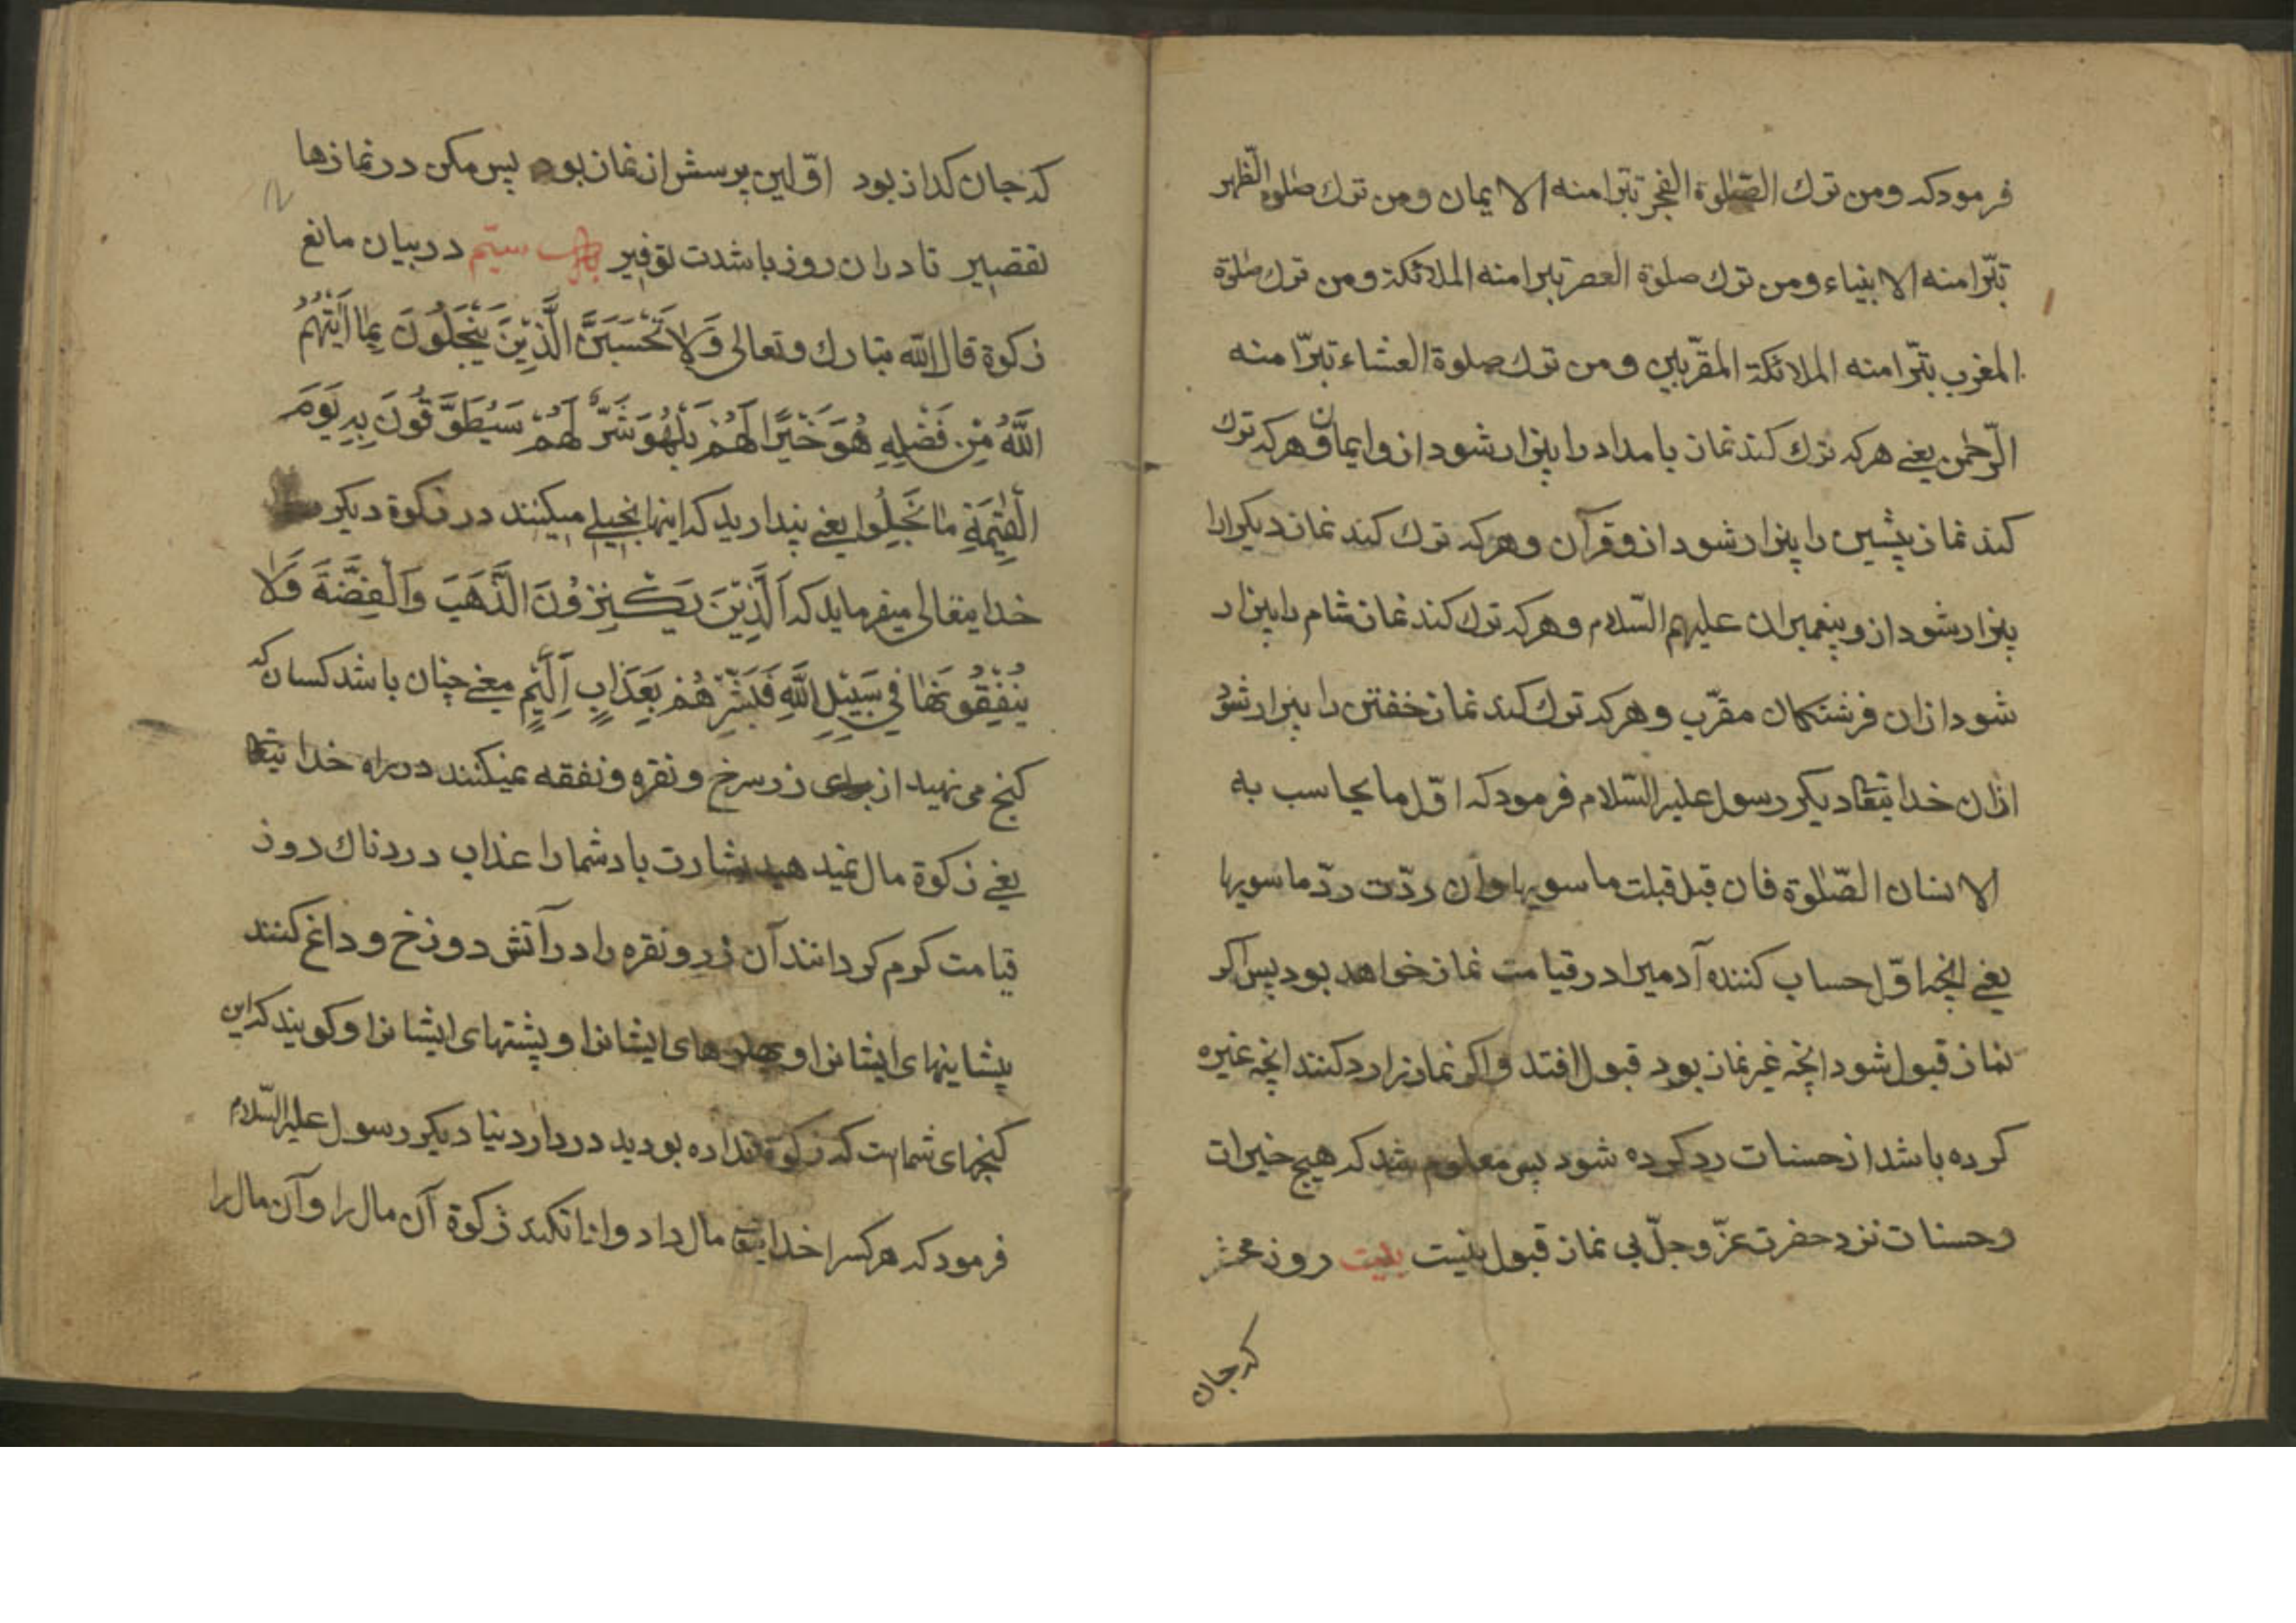 فرمودکه ومن ترك الصّلوة الفجر تبّرا منه الایمان ومن ترك صلوة الّظهر
تبّرا منه الانبیاء ومن ترك صلوة العصر تبرا منه الملائکة ومن ترك صلوة
المغرب تبّرا منه الملائکة المقرّبین ومن ترك صلوة العشاء تبرّا منه
الرّحمن یعنے هرکه ترك کند نماز بامداد را بیزار شود ازو ایمان و هرکه ترك
کند نماز پیشین را بیزار شود ازو قرآن و هرکه ترك کند نماز دیکر اورا
بیزار شود ازو پیغمبران علیهم السّلام و هرکه ترك کند نماز شام را بیزار
شود ازان فرشتکان مقرّب و هرکه ترك کند نماز خفتن را بیزار شود
ازان خدایتعا دیکر رسول علیه السّلام فرمودکه اوّل ما یحاسب به
الانسان الصّلوة فان قبل قبلت ما سویها وان ردّت ردّ ما سویها
یعنے انچه اوّل حساب کننده آدمیرا در قیامت نماز خواهد بود پس اکر
نماز قبول شود انچه غیر نماز بود قبول افتد و اکر نماز را رد کنند انچه غیره
کرده باشد از حسنات رد کرده شود پس معلوم شد که هیچ خیرات
وحسنات نزد حضرت عزّ وجلّ بی نماز قبول نیست بیت روز محشر
که جان
که جان کداز بود اوّلین پرسش از نماز بود پس مکن در نمازها
تقصیر تا دران روز باشدت توفیر باب سیّم در بیان مانع
زکوة قال اللّه تبارك وتعالی وَلاَ تَحْسَبَنَّ الَّذِیْنَ یَبْخَلُوْنَ بِمَا اَتٰهُمُ
اللّٰهُ مِنْ فَضْلِهِ هُوَ خَیْرًا لَهُمْ بَلْ هُوَ شَرٌّ لَهُمْ سَیُطَوَّقُوْنَ بِهِ یَوْمَ
الْقِیٰمَةِ مَا بَخِلُوا یعنے پنداریدکه اینها بخیلے میکنند در زکوة دیکر
خدایتعالی میفرمایدکه اَلَّذِیْنَ یَکْنِزُوْنَ الذَّهَبَ وَالْفِضَّةَ وَلاَ
یُنْفِقُوْنَهَا فِی سَبِیْلِ اللّٰهِ فَبَشِّرْهُمْ بِعَذَابٍ اَلِیْمٍ معنے چنان باشد کسان که
کنج می نهید از برای زر سرخ و نقره و نفقه نمیکنند در راه خدایتعا
یعنے زکوة مال نمیدهید بشارت باد شما را عذاب دردناك روز
قیامت کرم کردانند آن زر و نقره را در آتش دوزخ و داغ کنند
پیشانیهای ایشانرا و پهلوهای ایشانرا و پشتهای ایشانرا و کویند که این
کنجهای شماست که زکوة نداده بودید در دار دنیا دیکر رسول علیه السّلام
فرمودکه هر کسرا خدایتعا مال داد و ادا نکند زکوة آن مال را و آن مال را